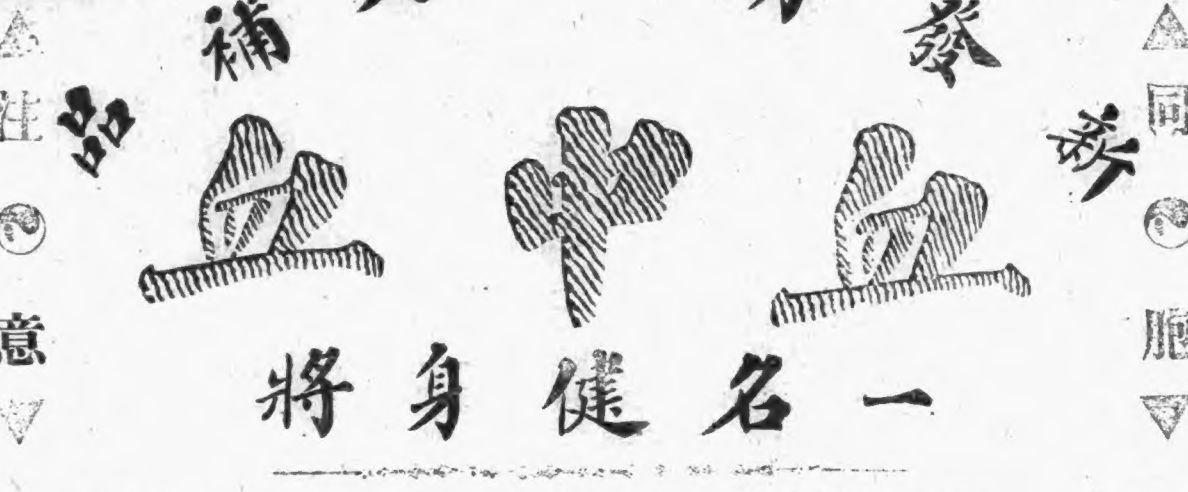 同胞
新發補品
血中血
一名健身將
注意